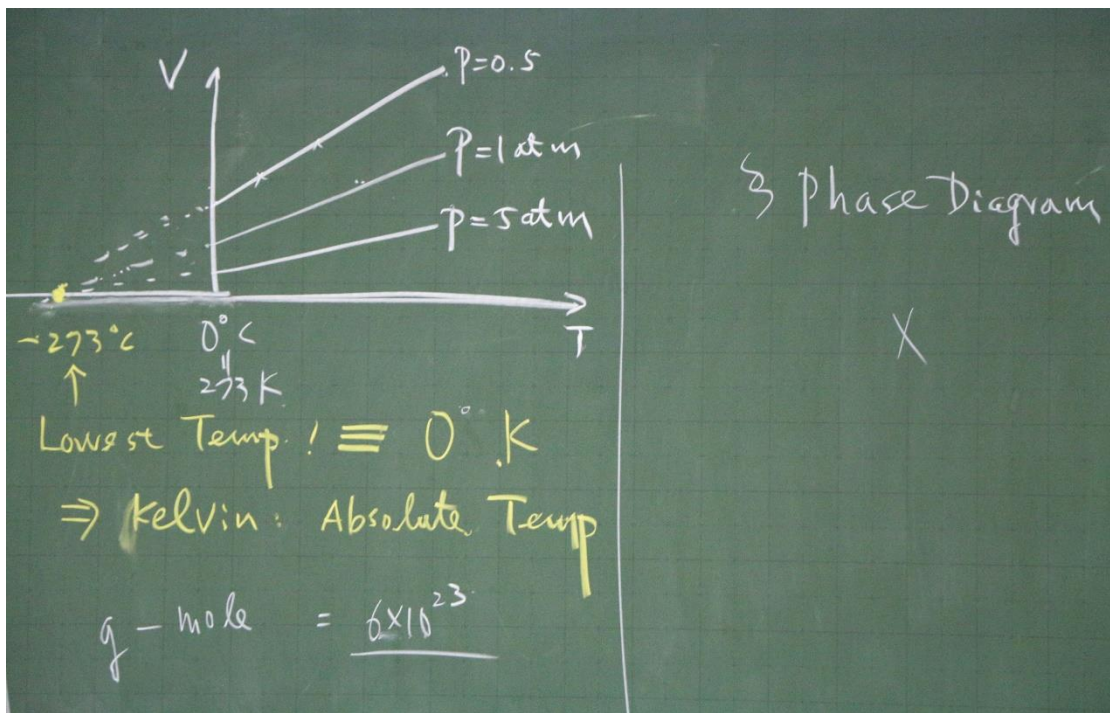 V
P=0.5
P=1 atm
P=5 atm
T
-273°C
0°C
॥
273 K
↑
Lowest Temp. ! ≡ 0° K
⇒ Kelvin: Absolute Temp
g - mole = 6×10²³
§ Phase Diagram
X